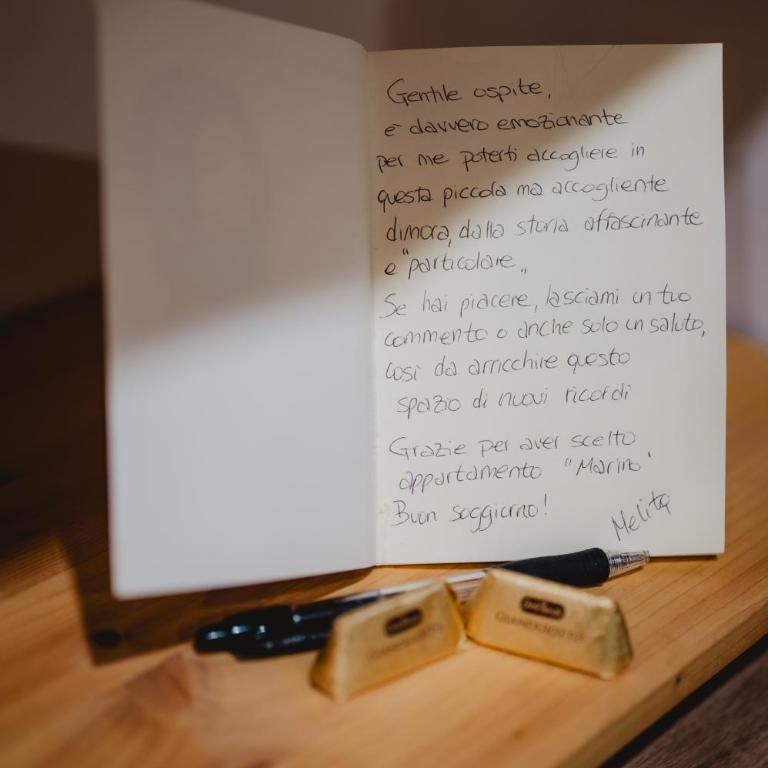 Gentile ospite,
è davvero emozionante
per me poterti accogliere in
questa piccola ma accogliente
dimora, dalla storia affascinante
e "particolare„
Se hai piacere, lasciami un tuo
commento o anche solo un saluto,
così da arricchire questo
spazio di nuovi ricordi
Grazie per aver scelto
appartamento "Marino"
Buon soggiorno!
Melita